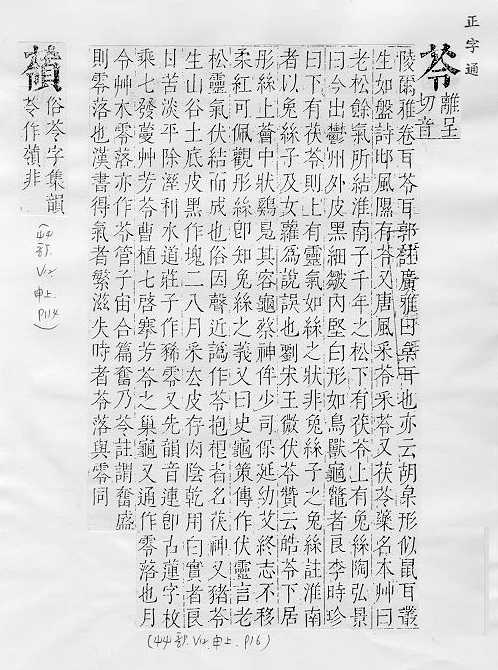 正字通
苓
離呈
切音
陵爾雅卷耳苓耳郭註廣雅曰枲耳也亦云胡枲形似鼠耳叢
生如盤詩邶風隰有苓又唐風采苓采苓又茯苓藥名本艸曰
老松餘氣所結淮南子千年之松下有茯苓上有兔絲陶弘景
曰今出鬱州外皮黑細皺內堅白形如鳥獸龜鼈者良李時珍
曰下有茯苓則上有靈氣如絲之狀非兔絲子之兔絲註淮南
者以兔絲子及女蘿爲說誤也劉宋王微茯苓贊云皓苓下居
彤絲上薈中狀鷄鳧其容龜蔡神侔少司保延幼艾終志不移
柔紅可佩觀彤絲卽知兔絲之義又曰史龜策傳作伏靈言老
松靈氣伏結而成也俗因聲近譌作苓抱根者名茯神又豬苓
生山谷土底皮黑作塊二八月采厺皮存肉陰乾用白實者良
甘苦淡平除溼利水道莊子作豨零又先韻音連卽古蓮字枚
乘七發蔓艸芳苓曹植七啓搴芳苓之巢龜又通作零落也月
令艸木零落亦作苓管子宙合篇奮乃苓註謂奮盛
則零落也漢書得氣者繁滋失時者苓落與零同
(44部.V4.申上.P16)
蘋
俗苓字集韻
苓作蘋非
(44部.V4.申上.P114)